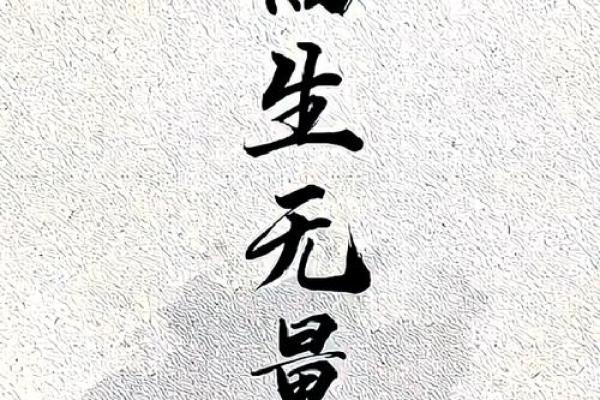 生无量